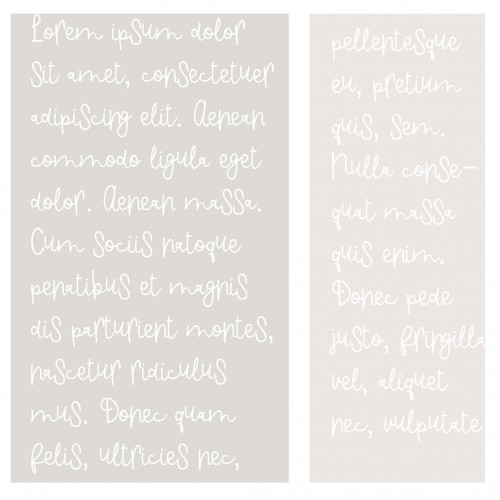 Lorem ipsum dolor
Sit amet, consectetuer
adipiscing elit. Aenean
commodo ligula eget
dolor. Aenean massa.
Cum sociis natoque
penatibus et magnis
dis parturient montes,
nascetur ridiculus
mus. Donec quam
felis, ultricies nec,
pellentesque
eu, pretium
quis, sem.
Nulla conse-
quat massa
quis enim.
Donec pede
justo, fringilla
vel, aliquet
nec, vulputate